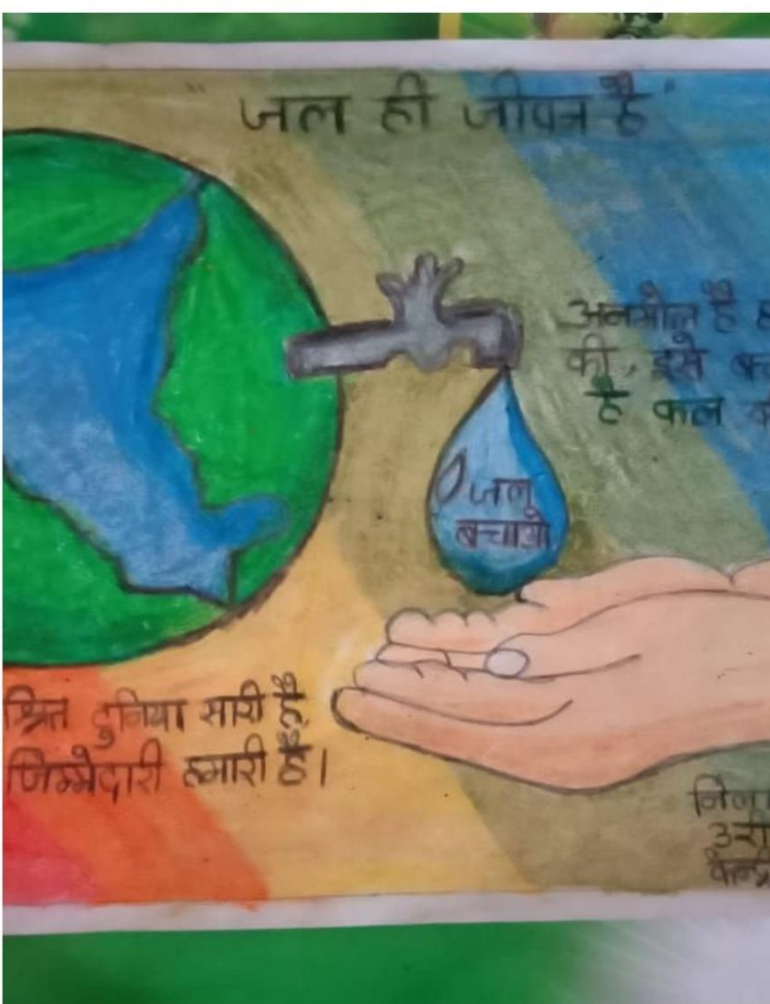 "जल ही जीवन है"
अनमोल है
की, इसे
है कल
जल
बचाओ
श्रित दुनिया सारी है,
जिम्मेदारी हमारी है।